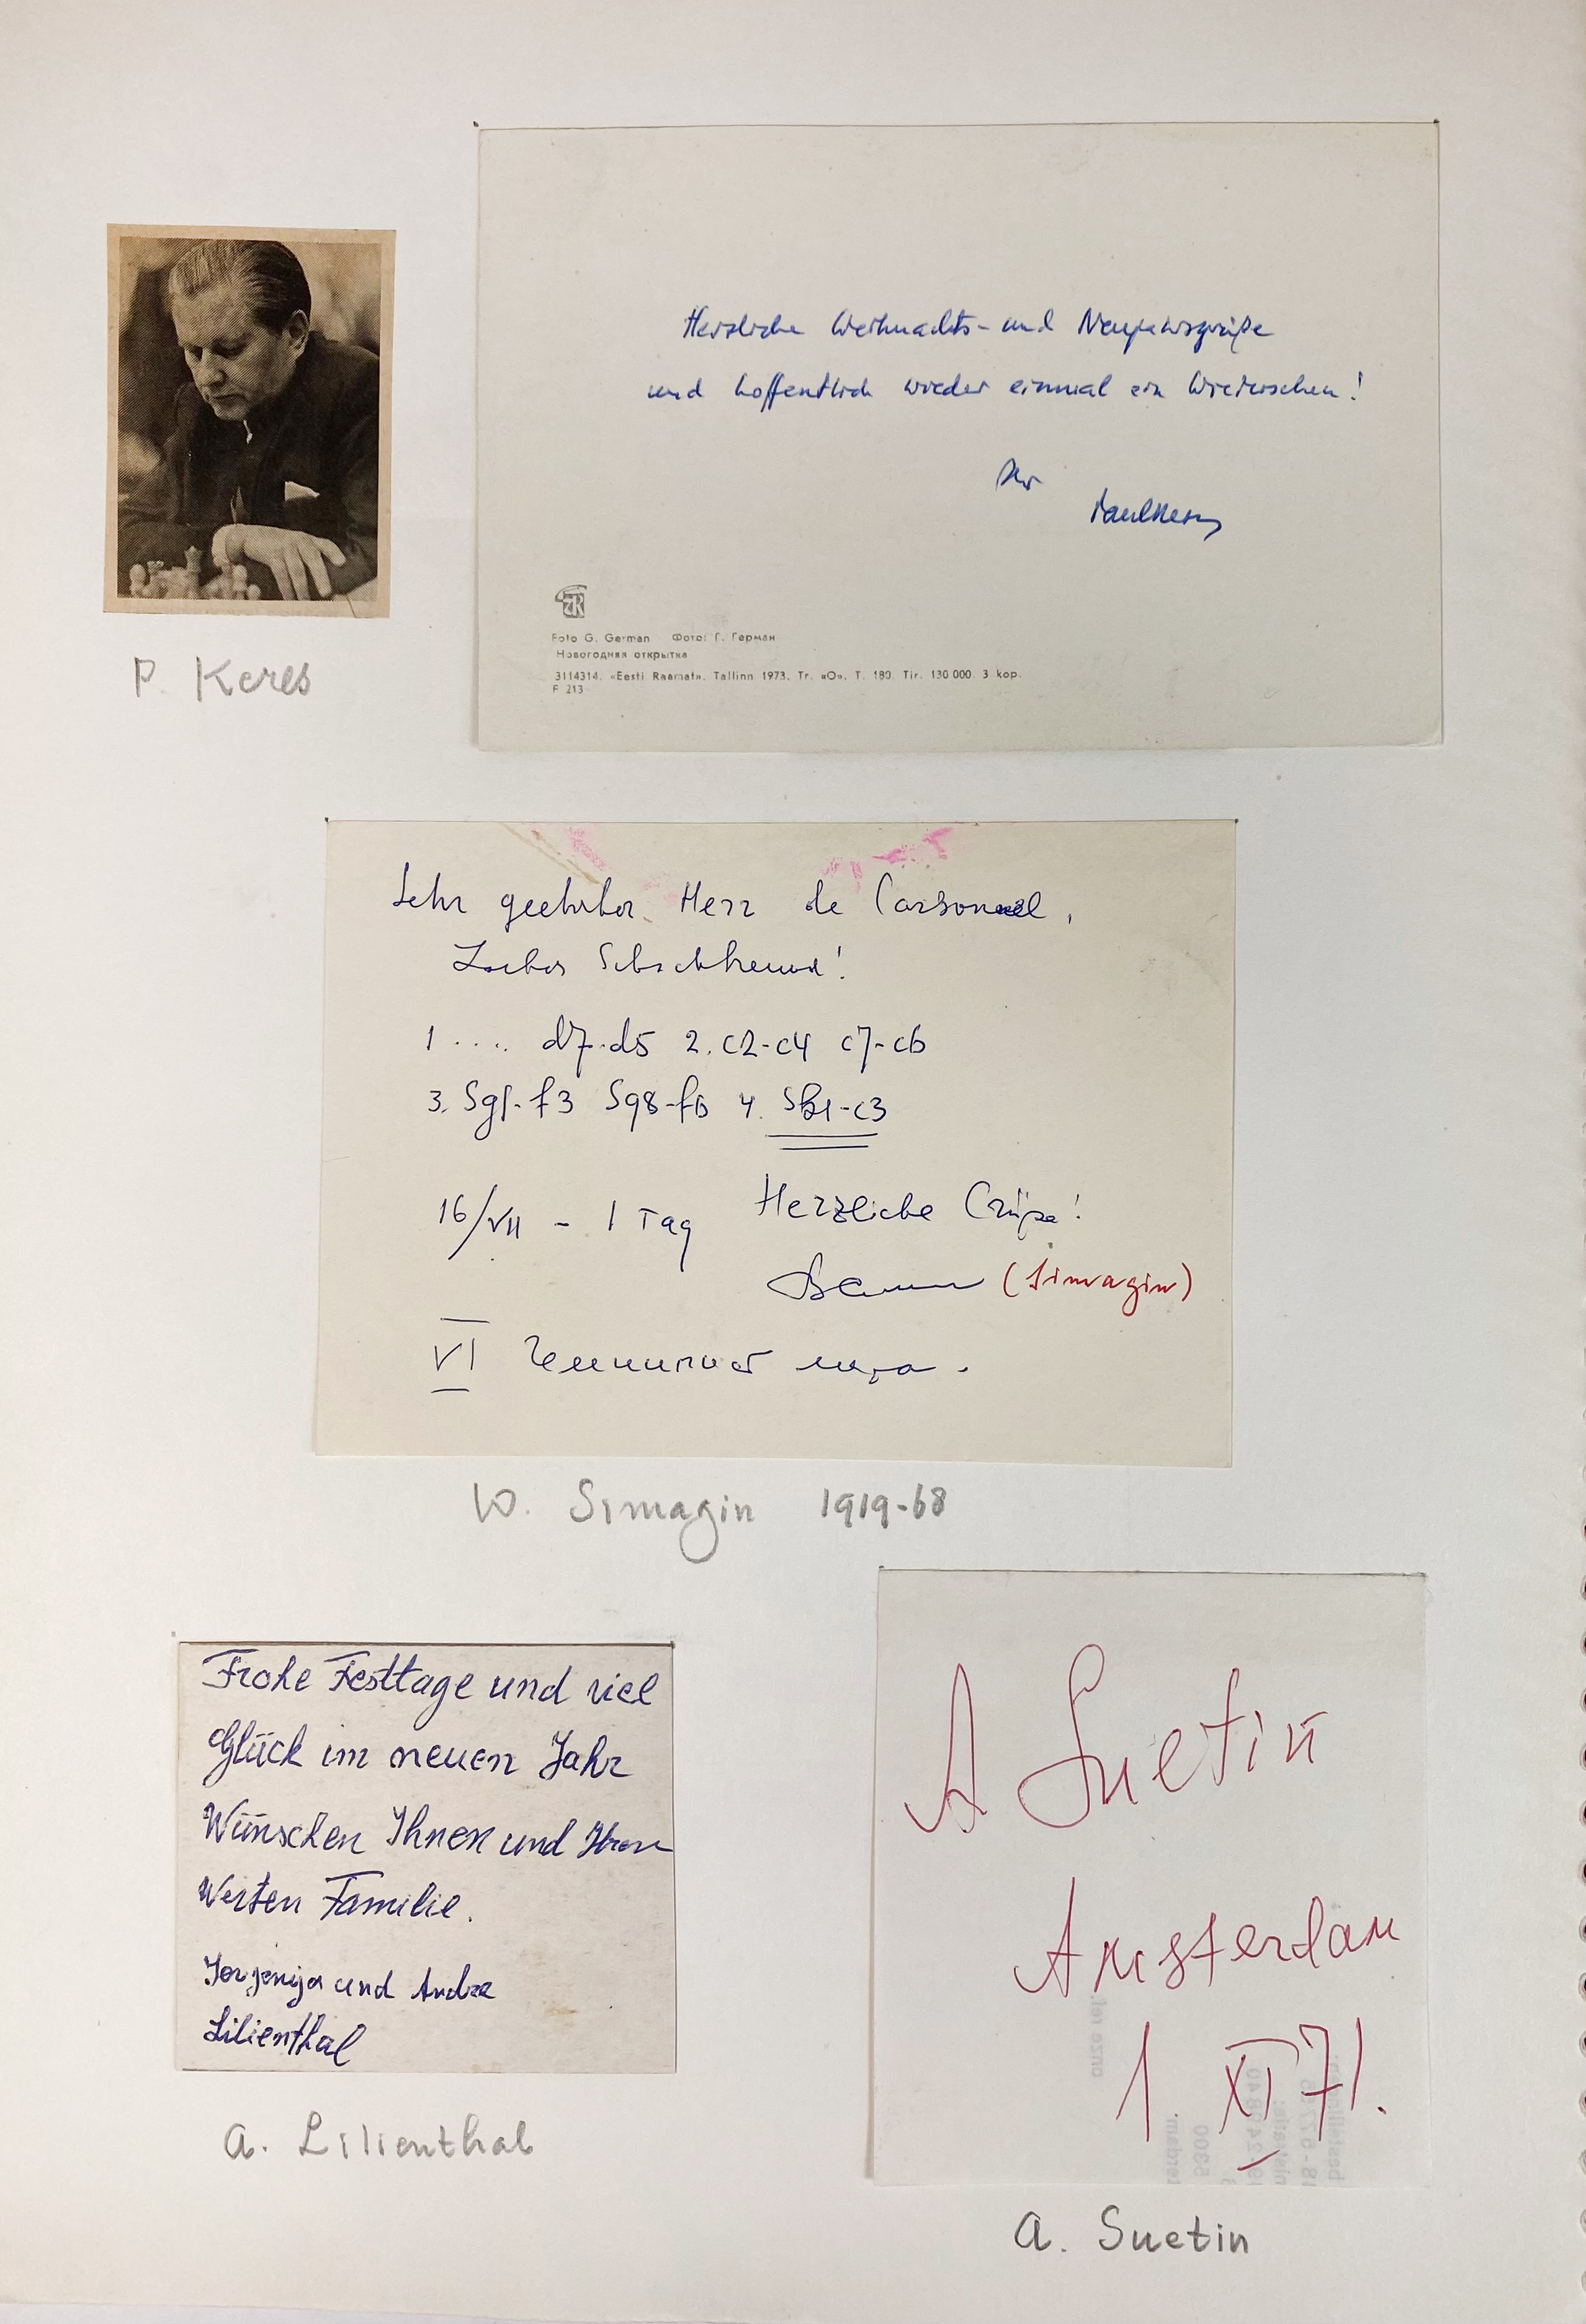 Herzliche Weihnachts- und Neujahrsgrüße
und hoffentlich wieder einmal ein Wiedersehen!
Ihr
Paul Keres
Foto G. German Фото: Г. Герман
Новогодняя открытка
3114314. «Eesti Raamat». Tallinn 1973. Tr. «O». T. 180. Tir. 130 000. 3 kop.
F 213
P. Keres
Sehr geehrter Herr de
Lieber Schachfreund!
1 .... d7-d5 2. c2-c4 c7-c6
3. Sg1-f3 Sg8-f6 4. Sb1-c3
16/VII - 1 Tag Herzliche Grüße!
(Simagin)
VI Чемпионат мира.
W. Simagin 1919-68
Frohe Festtage und viel
Glück im neuen Jahr
Wünschen Ihnen und Ihrer
Werten Familie.
und Andre
Lilienthal
A. Lilienthal
A Suetin
Amsterdam
1. XI 71.
onze ref.
A. Suetin